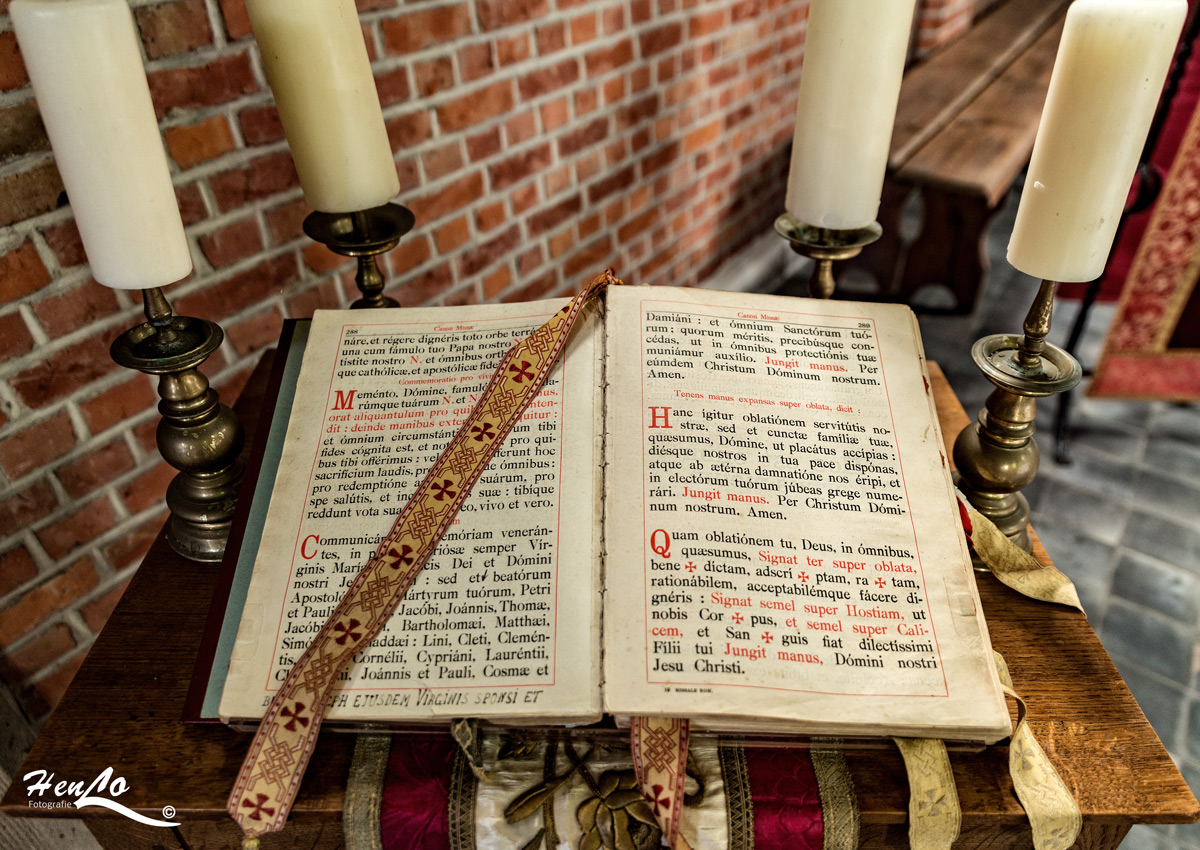 288
Canon Missæ
náre, et régere dignéris toto orbe terrá-
una cum fámulo tuo Papa nostro
tistite nostro N. et ómnibus orth
que cathólicæ, et apostólicæ fidei
Commemoratio pro viv
Meménto, Dómine, famuló
rúmque tuárum N. et N.
orat aliquantulum pro qui
dit : deinde manibus exte
et ómnium circumstánt um tibi
fides cógnita est, et not pro qui-
bus tibi offérimus : vel ferunt hoc
sacrifícium laudis, pro ómnibus :
pro redemptióne suárum, pro
spe salútis, et inc suæ : tibíque
reddunt vota sua eo, vivo et vero.
Communicá emóriam venerán-
tes, in p riósæ semper Vír-
ginis Marí cis Dei et Dómini
nostri Je : sed et beatórum
Apostoló Mártyrum tuórum, Petri
et Pauli Jacóbi, Joánnis, Thomæ,
Jacóbi Bartholomæi, Matthæi,
Simó haddæi : Lini, Cleti, Clemén-
tis, Cornélii, Cypriáni, Lauréntii,
Ch i, Joánnis et Pauli, Cosmæ et
EPH EJUSDEM VIRGINIS SPONSI ET
Canon Missæ
289
Damiáni : et ómnium Sanctórum tuó-
rum : quorum méritis, precibúsque con-
cédas, ut in ómnibus protectiónis tuæ
muniámur auxílio. Jungit manus. Per
eúndem Christum Dóminum nostrum.
Amen.
Tenens manus expansas super oblata, dicit :
Hanc ígitur oblatiónem servitútis no-
stræ, sed et cunctæ famíliæ tuæ,
quæsumus, Dómine, ut placátus accípias :
diésque nostros in tua pace dispónas,
atque ab ætérna damnatióne nos éripi, et
in electórum tuórum júbeas grege nume-
rári. Jungit manus. Per Christum Dómi-
num nostrum. Amen.
Quam oblatiónem tu, Deus, in ómnibus,
quæsumus, Signat ter super oblata,
bene ✠ díctam, adscrí ✠ ptam, ra ✠ tam,
rationábilem, acceptabilémque fácere di-
gnéris : Signat semel super Hostiam, ut
nobis Cor ✠ pus, et semel super Cali-
cem, et San ✠ guis fiat dilectíssimi
Fílii tui Jungit manus, Dómini nostri
Jesu Christi.
19 MISSALE ROM.
HenLo
Fotografie
©